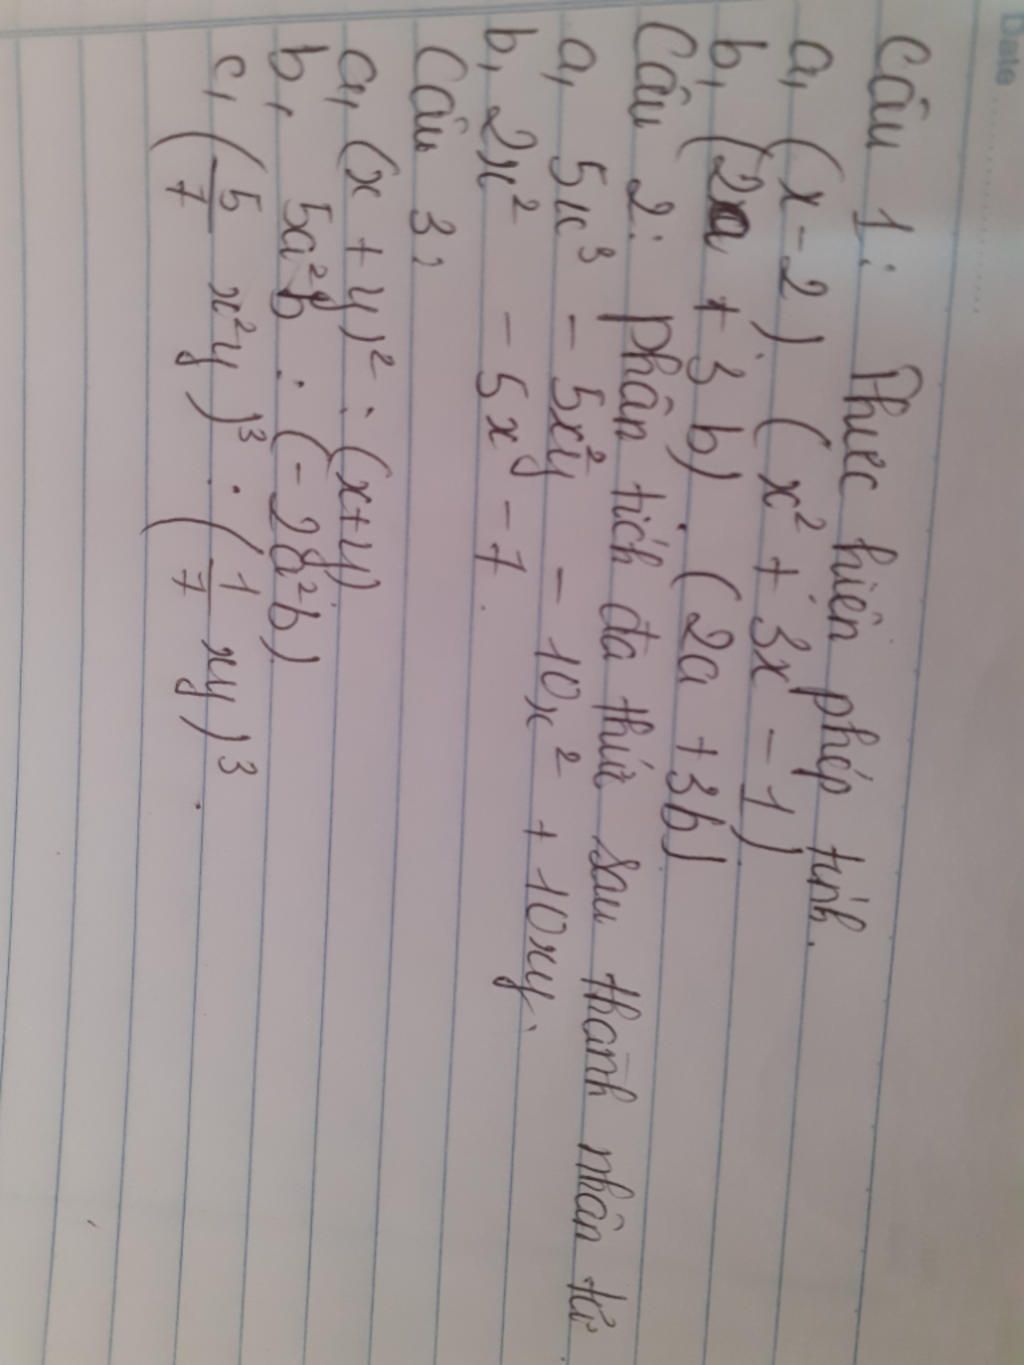 Date
Câu 1: Thực hiện phép tính.
a, (x - 2) (x² + 3x - 1)
b, (2a + 3b) (2a + 3b)
Câu 2: phân tích đa thức sau thành nhân tử
a, 5x³ - 5x²y - 10x² + 10xy.
b, 2x² - 5x - 7.
Câu 3:
a, (x + y)² : (x+y)
b, 5a²b : (-2a²b)
c, (5/7 x²y)³ : (1/7 xy)³.